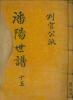 判官公派
潘陽世譜
十五